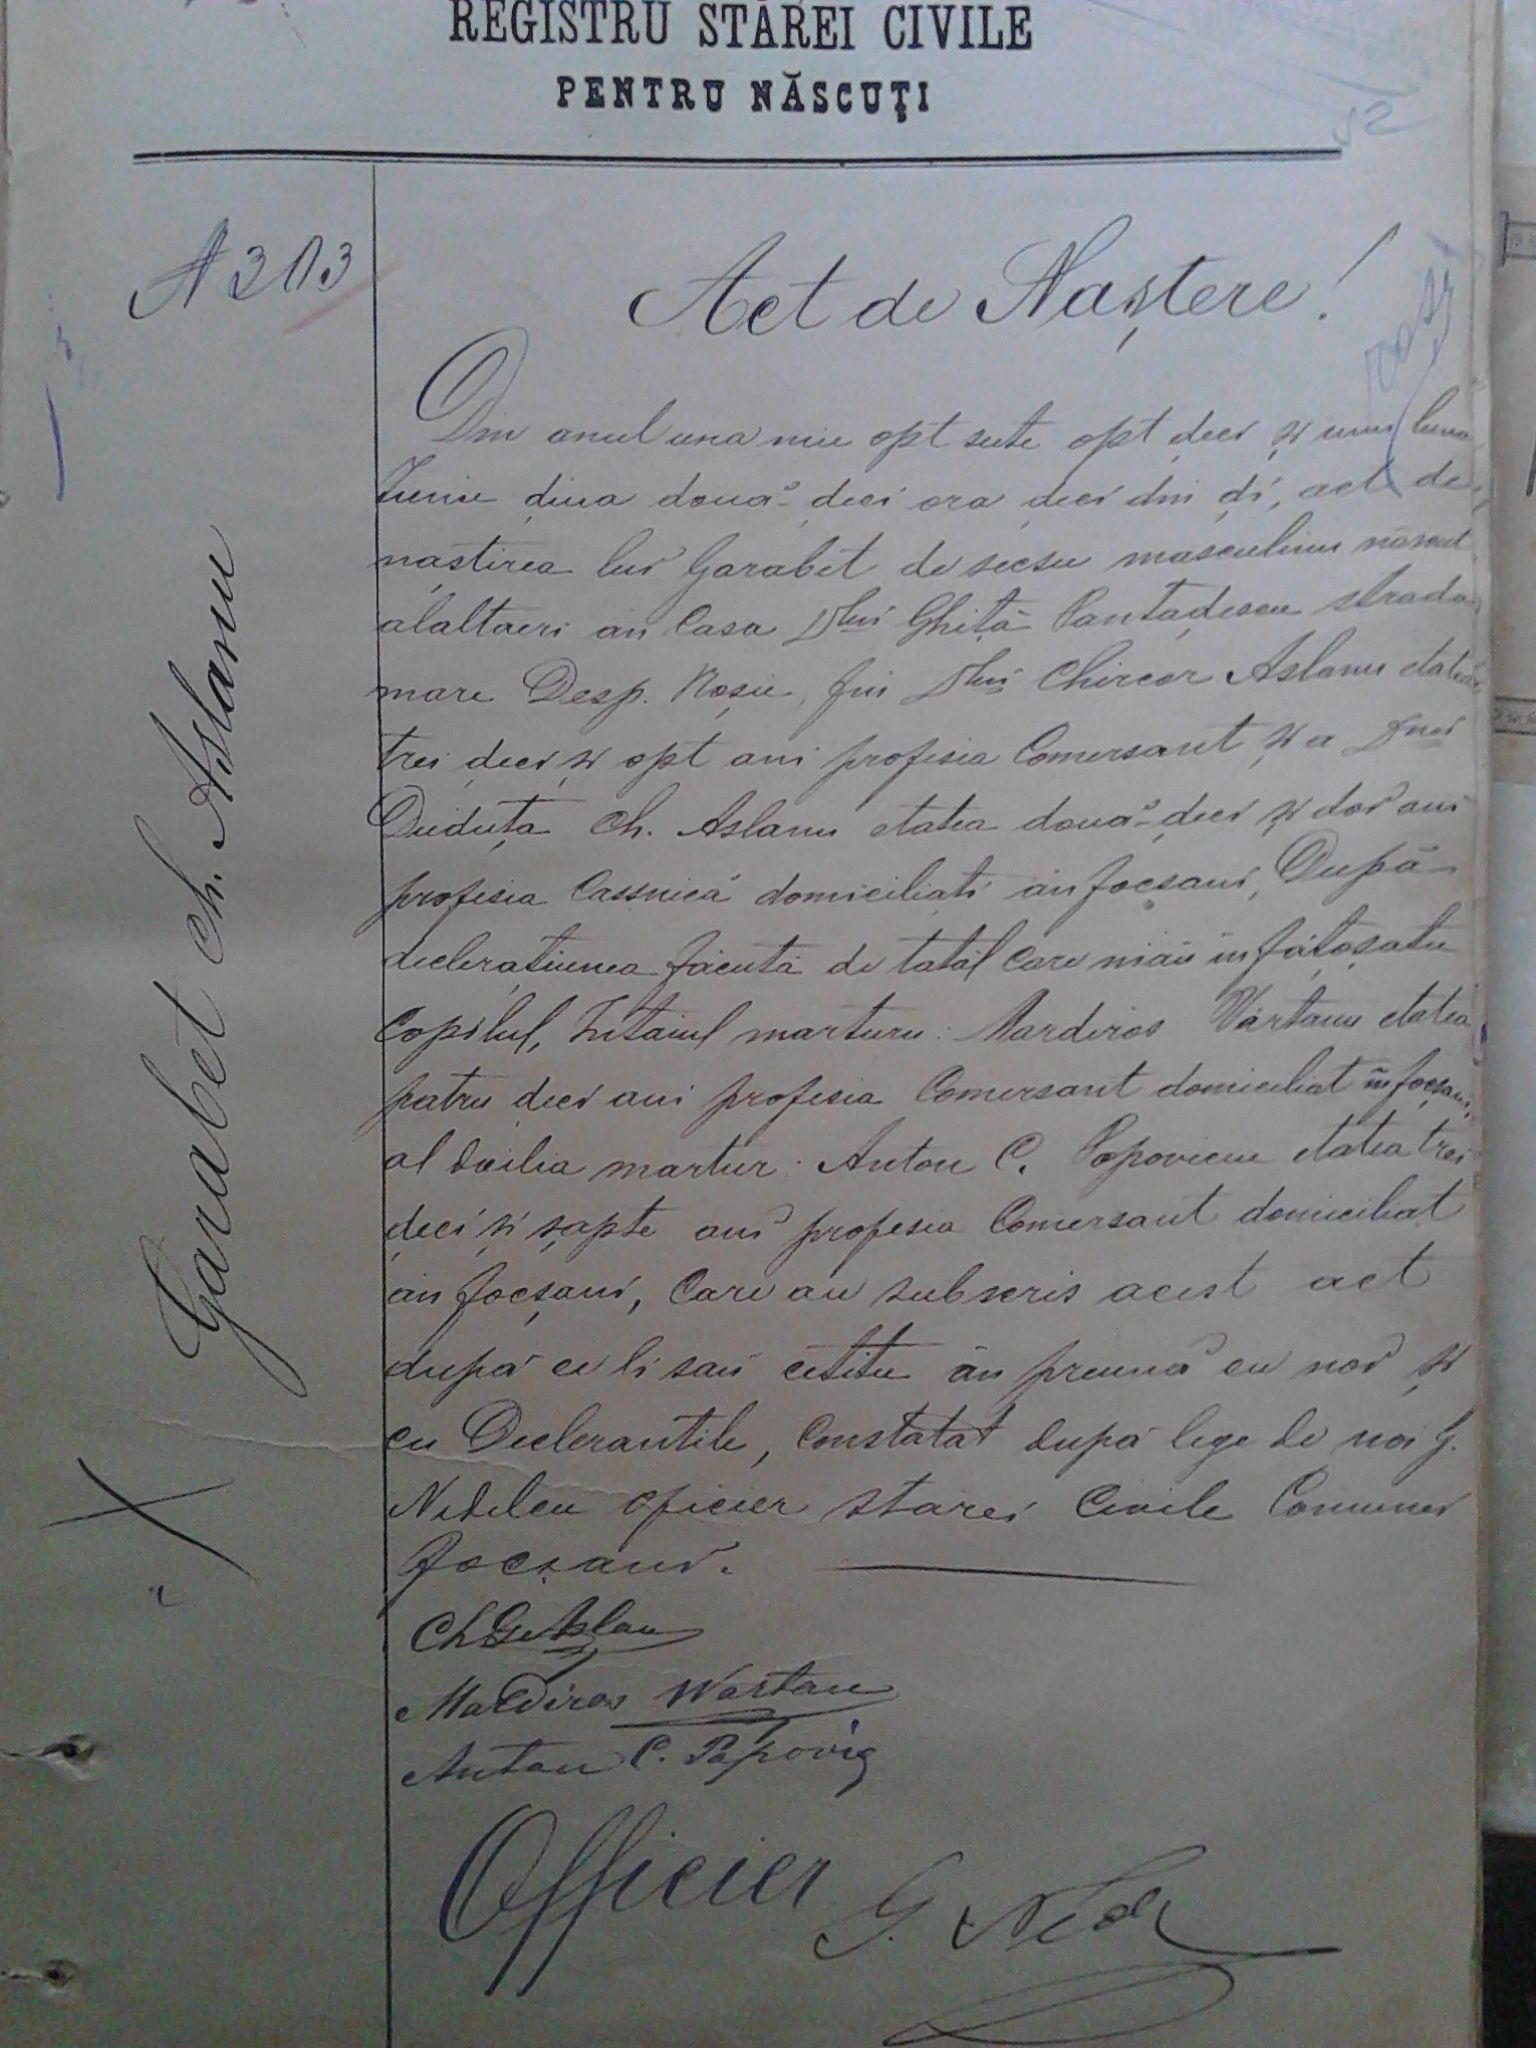 REGISTRU STĂREI CIVILE
PENTRU NĂSCUŢI
N 313
Act de Naștere!
Din anul una mie opt sute opt ḑeci și unu luna
Juniu ḑiua două-ḑeci ora ḑeci din ḑi, act de
nașterea lui Garabet de secsu masculinu născut
alaltaeri în Casa Dlui Ghiță Pantaḑescu strada
mare Desp. Roșie, fiu Dlui Chircor Aslanu etatea
trei ḑeci și opt ani profesia Comersant și a Dnei
Duduța Ch. Aslanu etatea două-ḑeci și doi ani
profesia Cassnică domiciliați în focșani, După
declerațiunea făcută de tatăl care niau înfățoșatu
Copilul, Întăiul marturu: Mardiros Vartanu etatea
patru ḑeci ani profesia Comersant domiciliat în focșani,
al doilia martur: Anton C. Popoviciu etatea trei
ḑeci și șapte ani profesia Comersant domiciliat
în focșani, Care au subscris acest act
după ce li sau cetitu în preună cu noi și
cu Declerantile, Constatat după lege de noi G.
Nedelcu oficier starei Civile Comunei
focșani.
Ch G Aslan
Mardiros Wartan
Anton C. Popovig
Officier G. Nedel
Garabet Ch. Aslanu